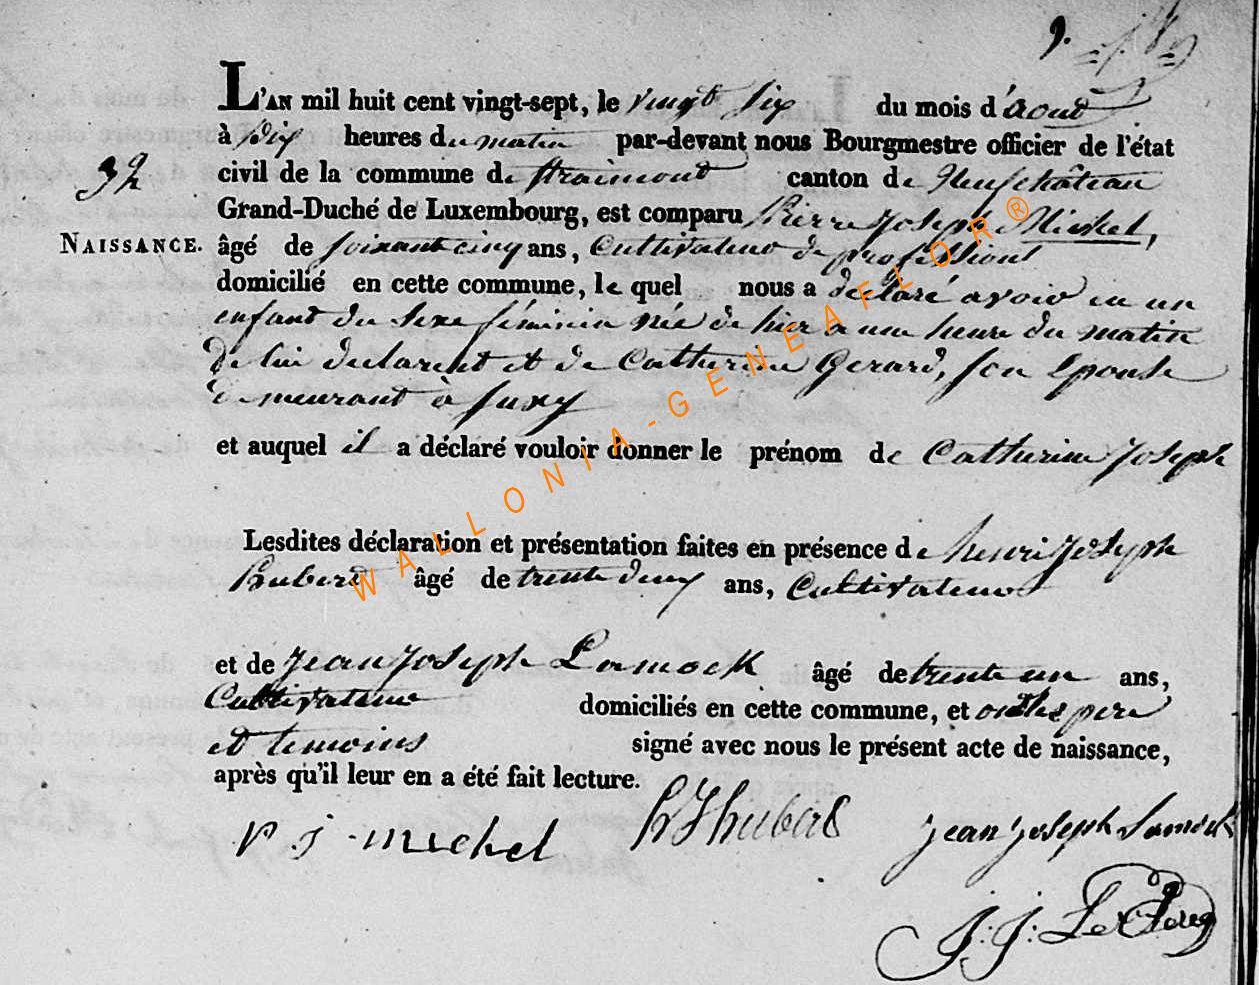 9.
L'AN mil huit cent vingt-sept, le vingt six du mois d'aout
à Dix heures du matin par-devant nous Bourgmestre officier de l'état
32
civil de la commune de straimont canton de Neufchâteau
Grand-Duché de Luxembourg, est comparu Pierre Joseph Michel,
NAISSANCE.
âgé de soixant cinq ans, Cultivateur de profession
domicilié en cette commune, le quel nous a déclaré avoir eu un
enfant du sexe féminin née de hier a une heure du matin
de lui declarent et de Catherine Gerard, son Epouse
demeurant à suxy
et auquel il a déclaré vouloir donner le prénom de Catherine Joseph
Lesdites déclaration et présentation faites en présence de henri Joseph
hubert âgé de trente deux ans, Cultivateur
et de Jean Joseph Lamock âgé de trente un ans,
Cultivateur domiciliés en cette commune, et ont les pere
et temoins signé avec nous le présent acte de naissance,
après qu'il leur en a été fait lecture.
p. j. michel h J hubert Jean Joseph Lamock
J: J: LeClerq
WALLONIA-GENEAFLOR®